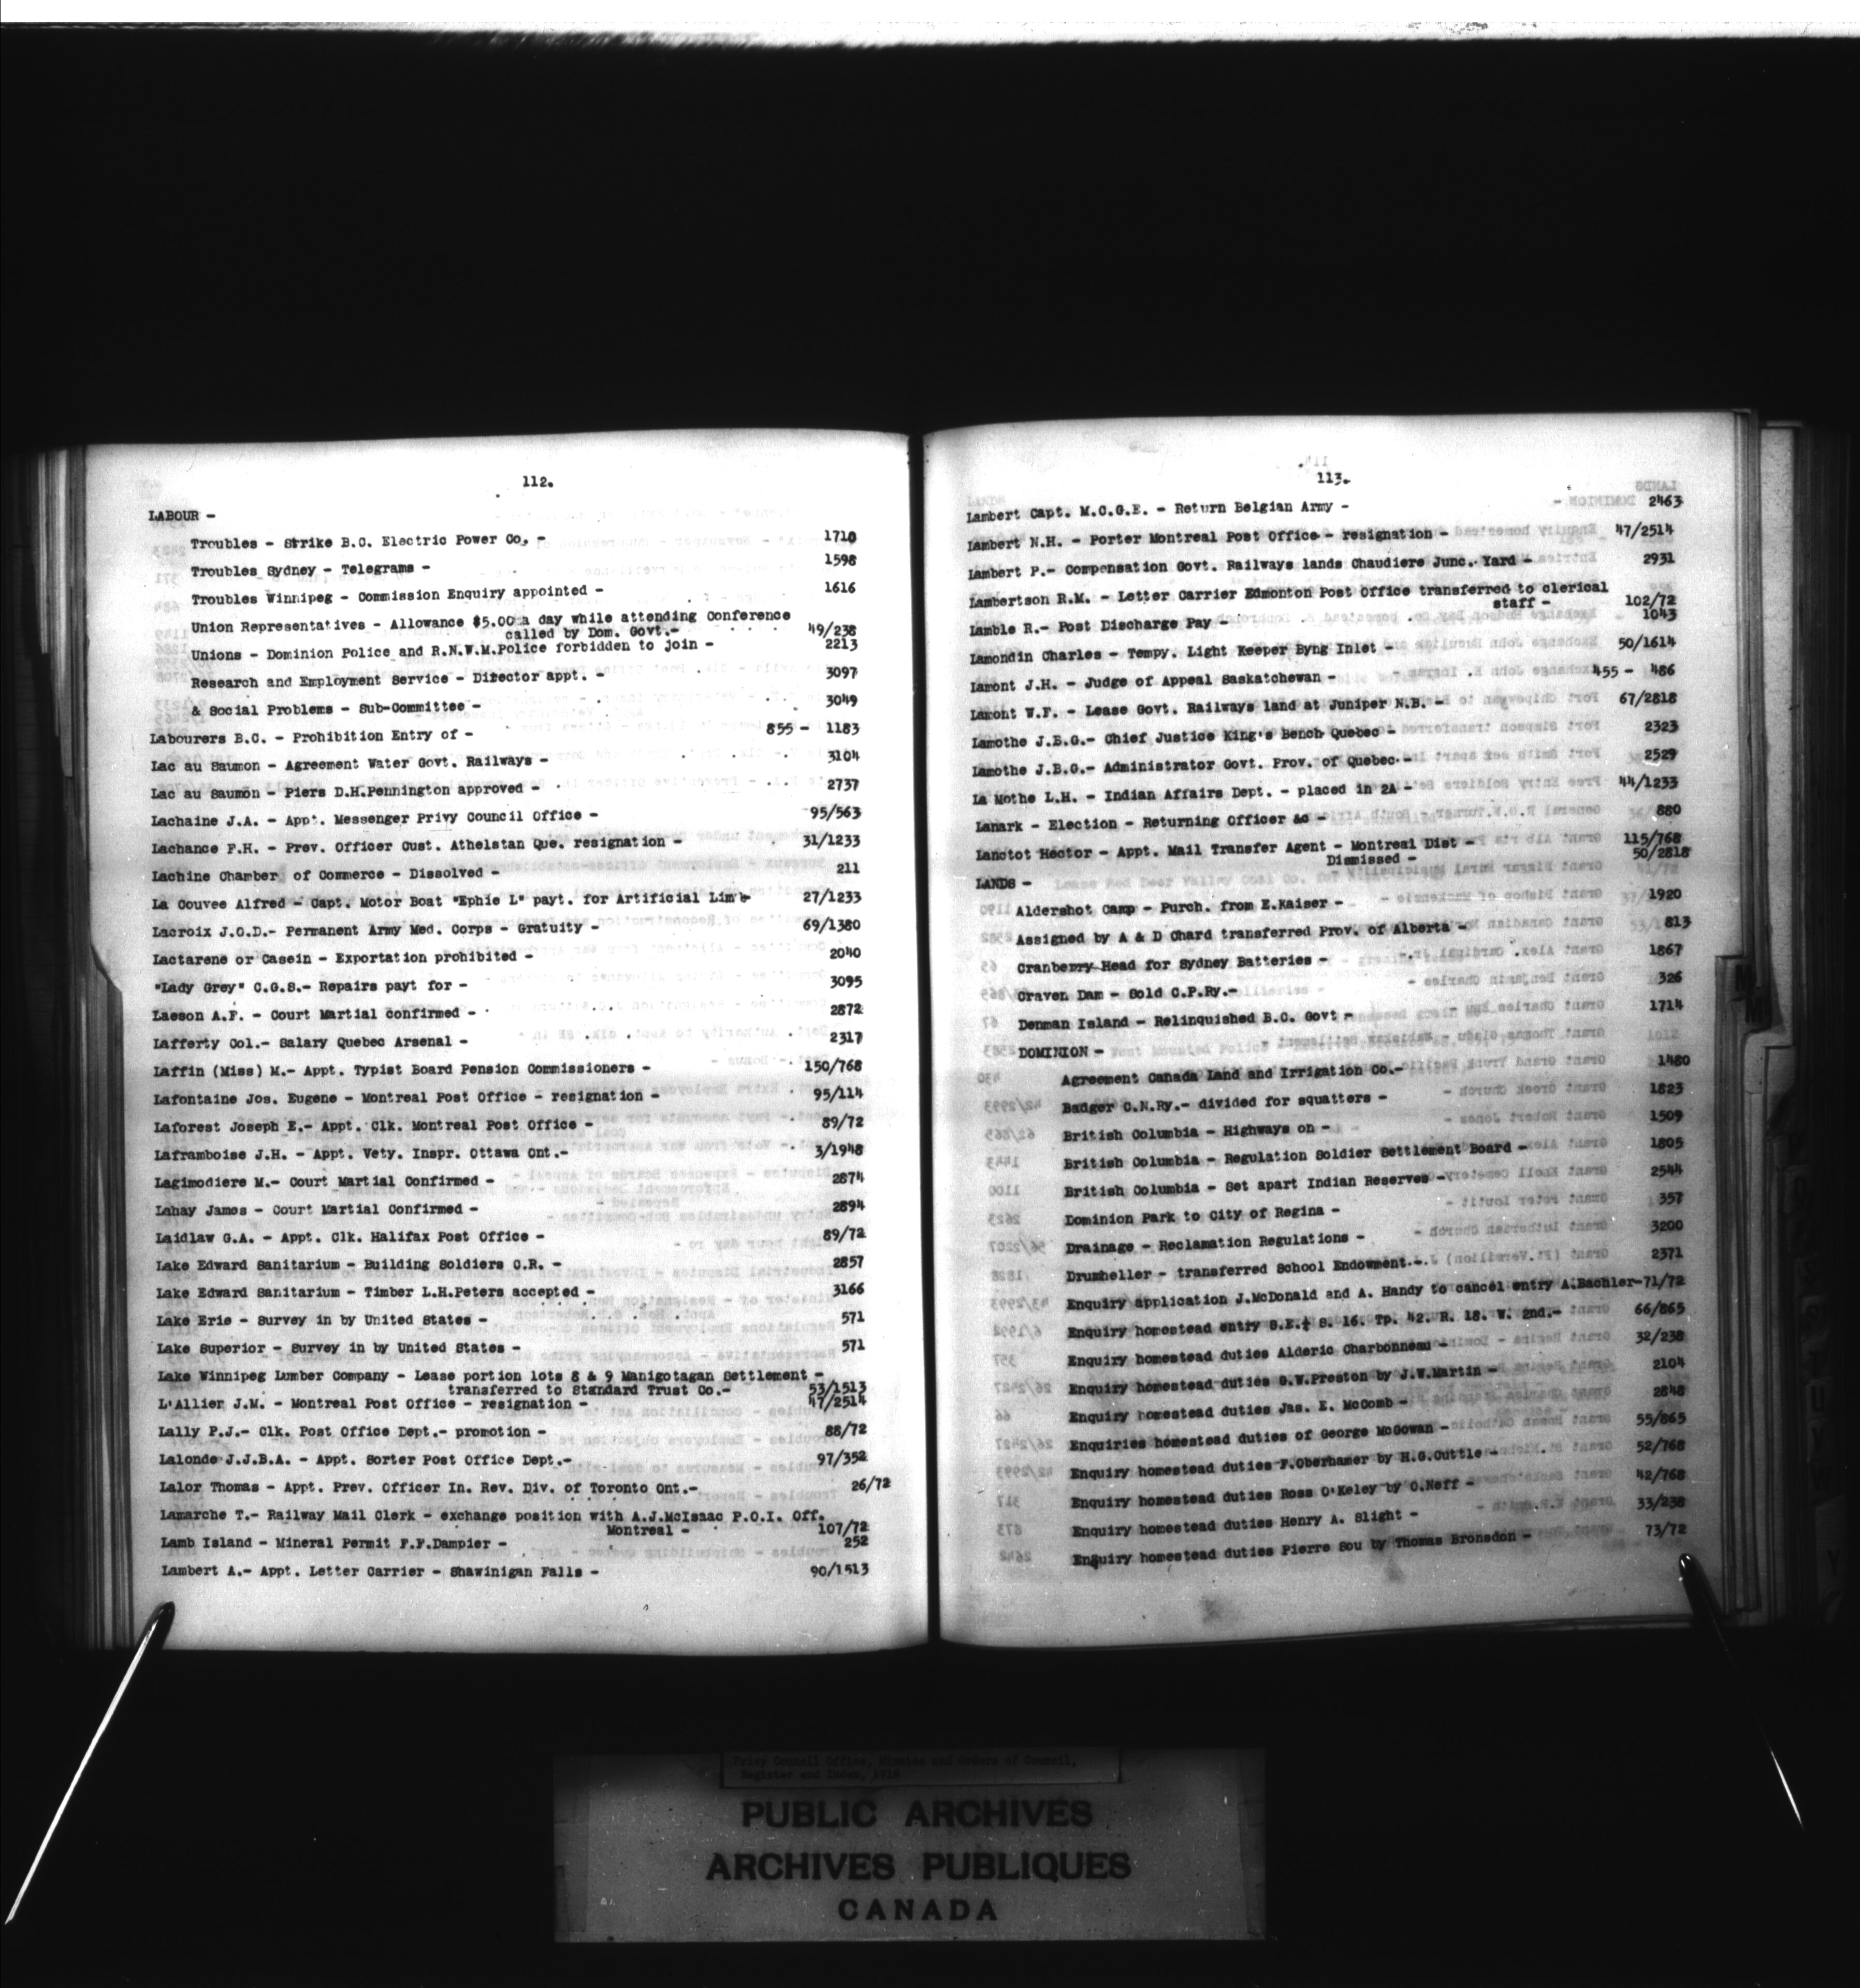 112.
LABOUR -
Troubles - Strike B.C. Electric Power Co. - 1710
Troubles Sydney - Telegrams - 1598
Troubles Winnipeg - Commission Enquiry appointed - 1616
Union Representatives - Allowance $5.00 a day while attending Conference
called by Dom. Govt.- 49/238
Unions - Dominion Police and R.N.W.M.Police forbidden to join - 2213
Research and Employment Service - Director appt. - 3097
& Social Problems - Sub-Committee - 3049
Labourers B.C. - Prohibition Entry of - 855 - 1183
Lac au Saumon - Agreement Water Govt. Railways - 3104
Lac au Saumon - Piers D.H.Pennington approved - 2737
Lachaine J.A. - Appt. Messenger Privy Council Office - 95/563
Lachance F.H. - Prev. Officer Cust. Athelstan Que. resignation - 31/1233
Lachine Chamber of Commerce - Dissolved - 211
La Couvee Alfred - Capt. Motor Boat "Ephie L" payt. for Artificial Limb- 27/1233
Lacroix J.O.D.- Permanent Army Med. Corps - Gratuity - 69/1380
Lactarene or Casein - Exportation prohibited - 2040
"Lady Grey" C.G.S.- Repairs payt for - 3095
Laeson A.F. - Court Martial confirmed - 2872
Lafferty Col.- Salary Quebec Arsenal - 2317
Laffin (Miss) M.- Appt. Typist Board Pension Commissioners - 150/768
Lafontaine Jos. Eugene - Montreal Post Office - resignation - 95/114
Laforest Joseph E.- Appt. Clk. Montreal Post Office - 89/72
Laframboise J.H. - Appt. Vety. Inspr. Ottawa Ont.- 3/1948
Lagimodiere M.- Court Martial Confirmed - 2874
Lahay James - Court Martial Confirmed - 2894
Laidlaw G.A. - Appt. Clk. Halifax Post Office - 89/72
Lake Edward Sanitarium - Building Soldiers C.R. - 2857
Lake Edward Sanitarium - Timber L.H.Peters accepted - 3166
Lake Erie - Survey in by United States - 571
Lake Superior - Survey in by United States - 571
Lake Winnipeg Lumber Company - Lease portion lots 8 & 9 Manigotagan Settlement -
transferred to Standard Trust Co.- 53/1513
L'Allier J.M. - Montreal Post Office - resignation - 47/2514
Lally P.J.- Clk. Post Office Dept.- promotion - 88/72
Lalonde J.J.B.A. - Appt. Sorter Post Office Dept.- 97/352
Lalor Thomas - Appt. Prev. Officer In. Rev. Div. of Toronto Ont.- 26/72
Lamarche T.- Railway Mail Clerk - exchange position with A.J.McIsaac P.O.I. Off.
Montreal - 107/72
Lamb Island - Mineral Permit F.F.Dampier - 252
Lambert A.- Appt. Letter Carrier - Shawinigan Falls - 90/1513
113.
Lambert Capt. M.C.G.E. - Return Belgian Army - 2463
Lambert N.H. - Porter Montreal Post Office - resignation - 47/2514
Lambert P.- Compensation Govt. Railways lands Chaudiere Junc. Yard - 2931
Lambertson R.M. - Letter Carrier Edmonton Post Office transferred to clerical
staff - 102/72
Lamble R.- Post Discharge Pay - 1043
Lamondin Charles - Tempy. Light Keeper Byng Inlet - 50/1614
Lamont J.H. - Judge of Appeal Saskatchewan - 455 - 486
Lamont W.F. - Lease Govt. Railways land at Juniper N.B. - 67/2818
Lamothe J.B.G.- Chief Justice King's Bench Quebec - 2323
Lamothe J.B.G.- Administrator Govt. Prov. of Quebec - 2529
La Mothe L.H. - Indian Affairs Dept. - placed in 2A - 44/1233
Lanark - Election - Returning Officer &c - 880
Lanctot Hector - Appt. Mail Transfer Agent - Montreal Dist - 115/768
Dismissed - 50/2818
LANDS -
Aldershot Camp - Purch. from E.Kaiser - 1920
Assigned by A & D Chard transferred Prov. of Alberta - 813
Cranberry Head for Sydney Batteries - 1867
Craven Dam - Sold C.P.Ry.- 326
Denman Island - Relinquished B.C. Govt - 1714
DOMINION -
Agreement Canada Land and Irrigation Co.- 1480
Badger C.N.Ry.- divided for squatters - 1823
British Columbia - Highways on - 1509
British Columbia - Regulation Soldier Settlement Board - 1805
British Columbia - Set apart Indian Reserves - 2544
Dominion Park to City of Regina - 357
Drainage - Reclamation Regulations - 3200
Drumheller - transferred School Endowment.- 2371
Enquiry application J.McDonald and A. Handy to cancel entry A.Bachler-71/72
Enquiry homestead entry S.E.¼ S. 16. Tp. 42. R. 18. W. 2nd.- 66/865
Enquiry homestead duties Alderic Charbonneau - 32/238
Enquiry homestead duties S.W.Preston by J.W.Martin - 2104
Enquiry homestead duties Jas. E. McComb - 2848
Enquiries homestead duties of George McGowan - 55/865
Enquiry homestead duties F.Oberhamer by H.G.Cuttle - 52/768
Enquiry homestead duties Ross O'Keley by O.Neff - 42/768
Enquiry homestead duties Henry A. Slight - 33/238
Enquiry homestead duties Pierre Sou by Thomas Bronsdon - 73/72
Privy Council Office, Minutes and Orders of Council,
Register and Index,
PUBLIC ARCHIVES
ARCHIVES PUBLIQUES
CANADA